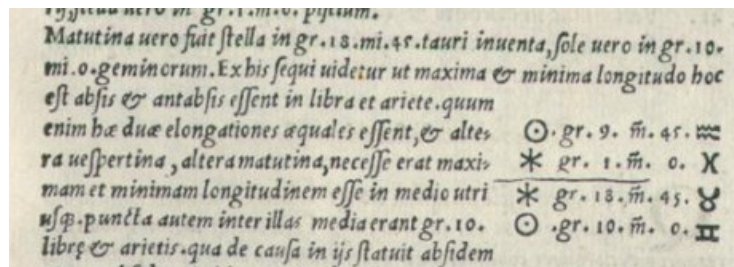 stella uero in gr.1.m.0. piscium.
Matutina uero fuit stella in gr.18.mi.45.tauri inuenta, sole uero in gr.10.
mi.0.geminorum. Ex his sequi uidetur ut maxima & minima longitudo hoc
est absis & antabsis essent in libra et ariete.quum
enim hæ duæ elongationes æquales essent, & alte-
ra uespertina, altera matutina, necesse erat maxi-
mam et minimam longitudinem esse in medio utri
usq̃.puncta autem inter illas media erant gr.10.
librę & arietis.qua de causa in ijs statuit absidem
☉.gr. 9. m̃. 45. ♒
✶ gr. 1.m̃. 0. ♓
✶ gr. 18.m̃. 45. ♉
☉ .gr. 10. m̃. 0. ♊